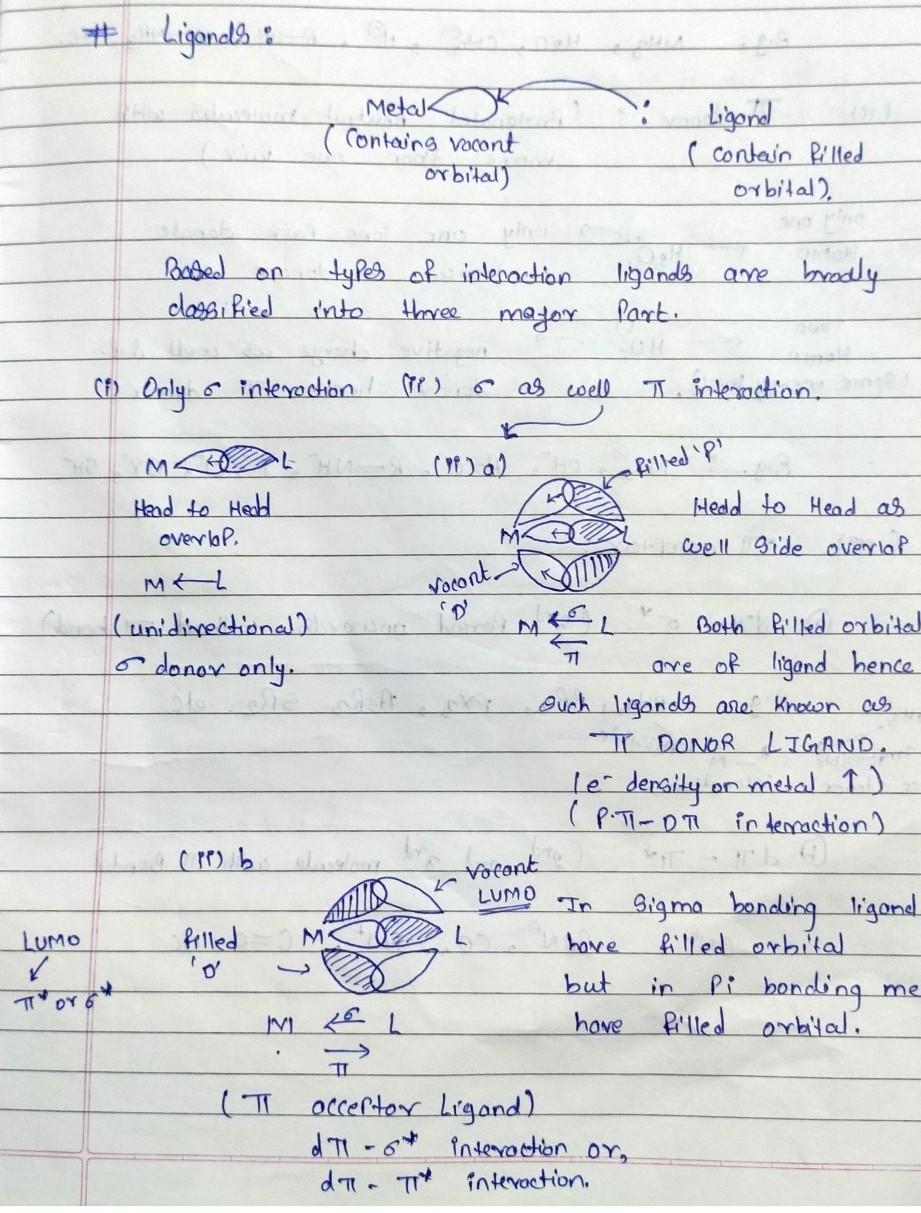 # Ligands :
Metal : Ligand
( Contains vacant orbital)
( contain filled orbital).
Based on types of interaction ligands are broadly
classified into three major Part.
(i) Only σ interaction (ii) σ as well π interaction.
M L
Head to Head
overlap.
M ← L
(unidirectional)
σ donor only.
(ii) a)
filled 'P'
M L
vacant 'D'
Head to Head as
well side overlap
M ←σ L
←π
Both filled orbital
are of ligand hence
such ligands are known as
π DONOR LIGAND.
(e⁻ density on metal ↑)
( P.π – Dπ interraction)
(ii) b
vacant
LUMO
LUMO
↙
π* or σ*
filled
'D'
M L
M ←σ L
→π
In Sigma bonding ligand
have filled orbital
but in Pi bonding me
have filled orbital.
( π acceptor Ligand)
dπ - σ* interaction or,
dπ - π* interaction.